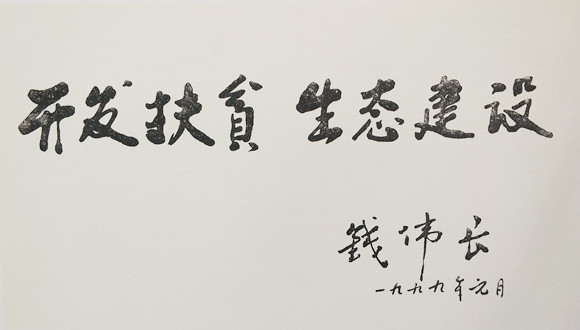 开发扶贫 生态建设
钱伟长
一九九九年元月